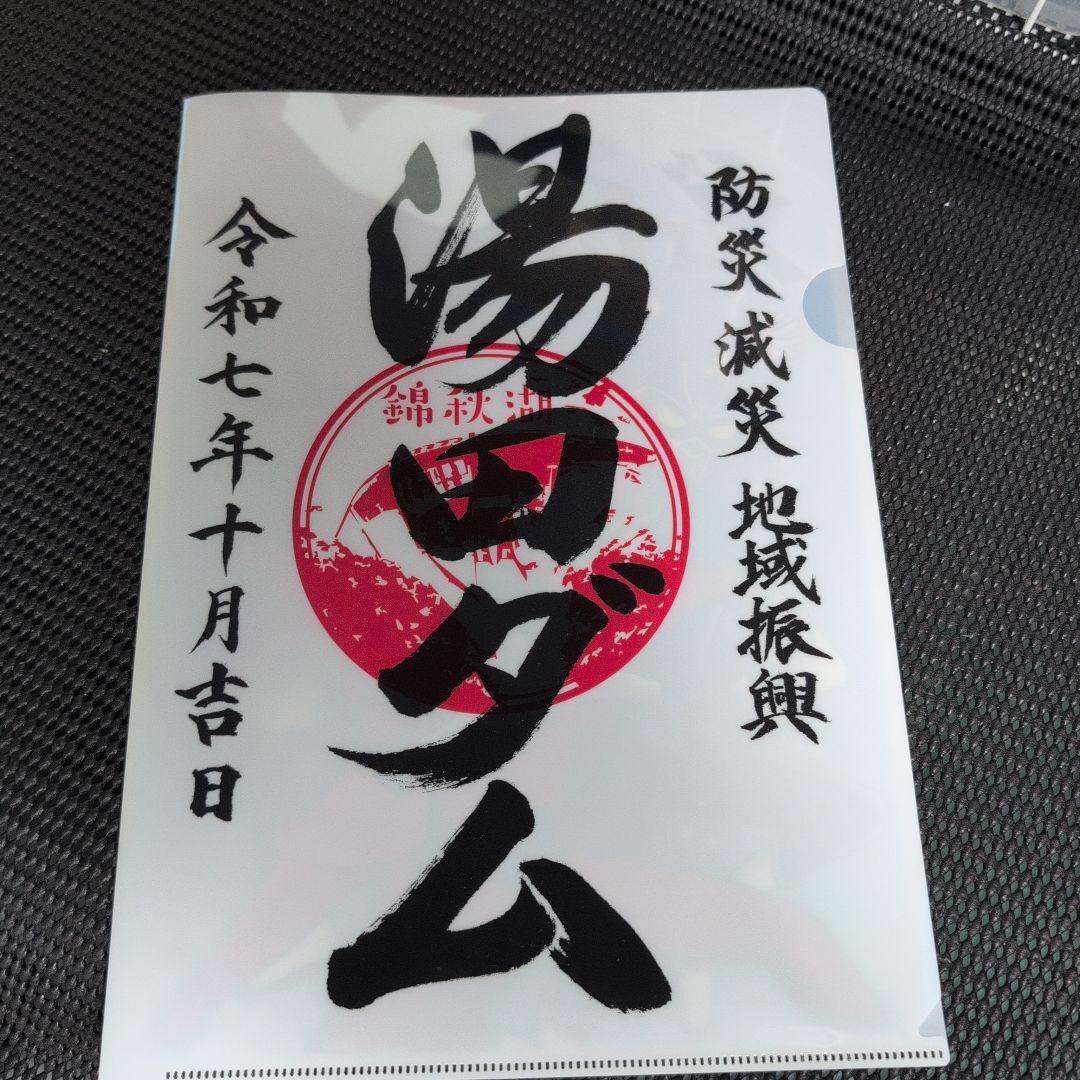 防災減災 地域振興
湯田ダム
錦秋湖
令和七年十月吉日